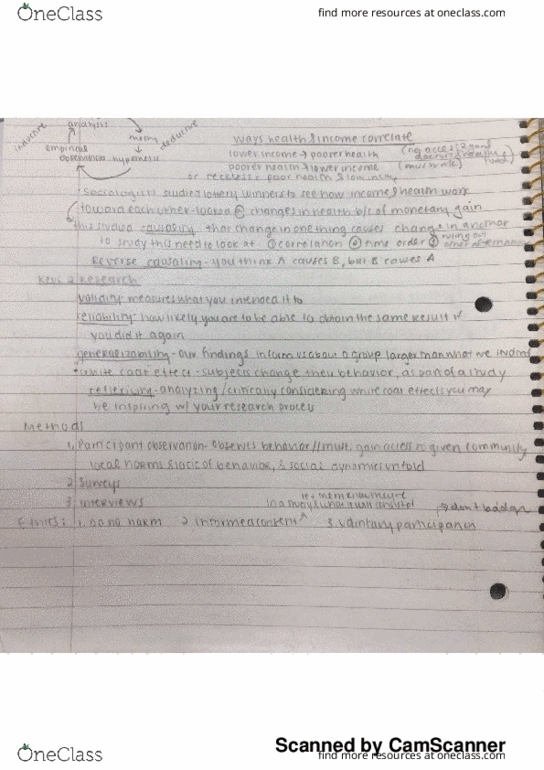 OneClass
find more resources at oneclass.com
analysis
inductive
deductive
empirical
hypothesis
ways health & income correlate
lower income → poorer health
poorer health → lower income
or reckless → poor health & low
Sociologists studied lottery winners to see how income & health work
toward each other - looked @ changes in health b/c of monetary gain
this studied causality - that change in one thing causes change in another
to study this need to look at ① correlation ② time order ③ ruling out
Reverse causality - you think A causes B, but B causes A
Keys 2 Research
validity - measures what you intended it to
reliability - how likely you are to be able to obtain the same result if
you did it again
generalizability - our findings inform us about a group larger than what we
white coat effect - subjects change their behavior, as part of a study
reflexivity - analyzing / critically considering white coat effects you may
be inspiring w/ your research process
Methods
1. Participant observation - observes behavior // must gain access to given community
local norms & logic of behavior, & social dynamics unfold
2. Surveys
3. interviews
Ethics: 1. Do no harm 2. informed consent 3. voluntary participation
Scanned by CamScanner
OneClass
find more resources at oneclass.com